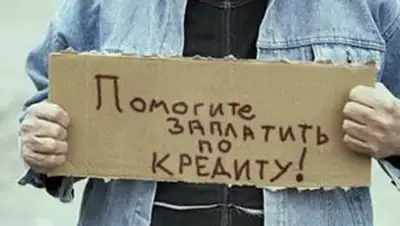 Помогите
заплатить
по
кредиту!